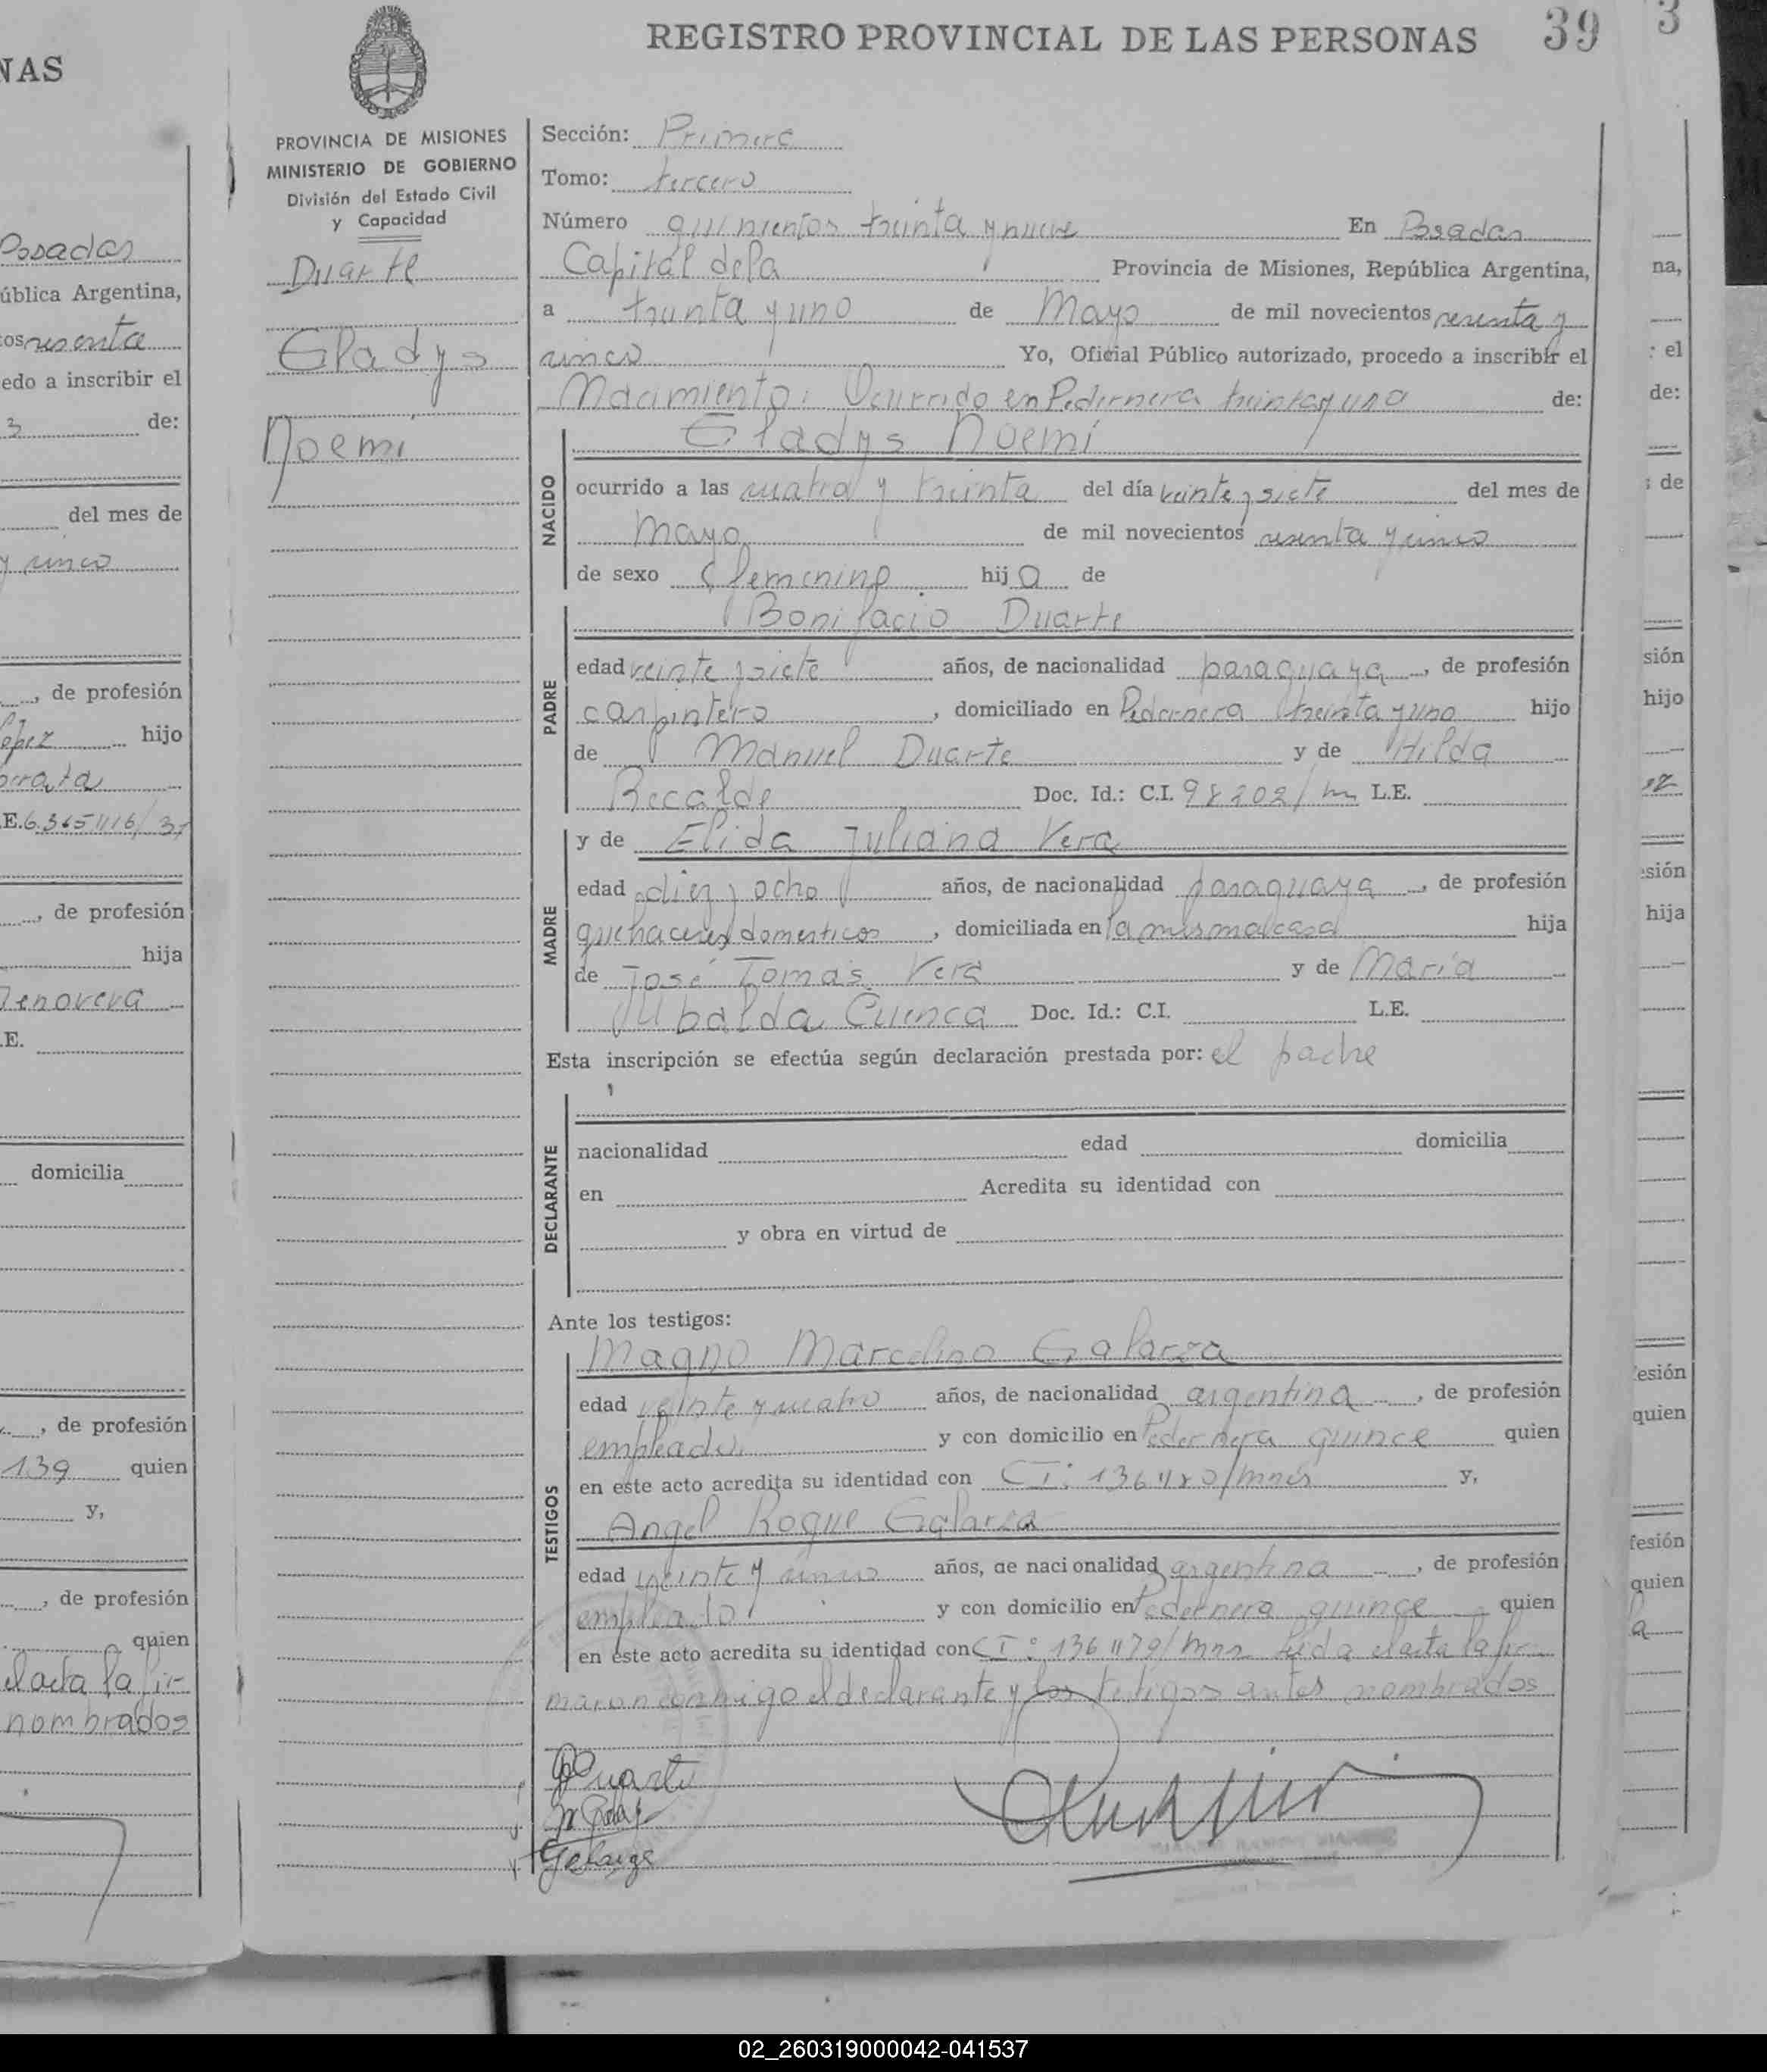 NAS
Posadas
ública Argentina,
os sesenta
edo a inscribir el
de:
del mes de
y cinco
de profesión
López hijo
E. 6.365.1116/37
de profesión
hija
Genoveva
.E.
domicilia
, de profesión
139 quien
y,
, de profesión
quien
el acta la fir-
nombrados
REGISTRO PROVINCIAL DE LAS PERSONAS 39
PROVINCIA DE MISIONES
MINISTERIO DE GOBIERNO
División del Estado Civil
y Capacidad
Duarte
Gladys
Noemi
Sección: Primera
Tomo: tercero
Número quinientos treinta y nueve En Posadas
Capital de la Provincia de Misiones, República Argentina,
a treinta y uno de Mayo de mil novecientos sesenta y
cinco Yo, Oficial Público autorizado, procedo a inscribir el
Nacimiento: Ocurrido en Pedernera treinta y uno de:
Gladys Noemi
NACIDO
ocurrido a las cuatro y treinta del día veinte y siete del mes de
Mayo de mil novecientos sesenta y cinco
de sexo femenino hija de
Bonifacio Duarte
PADRE
edad veinte y siete años, de nacionalidad paraguaya, de profesión
carpintero, domiciliado en Pedernera treinta y uno hijo
de Manuel Duarte y de Hilda
Recalde Doc. Id.: C.I. 98202/m L.E.
MADRE
y de Elida Juliana Vera
edad diez y ocho años, de nacionalidad paraguaya, de profesión
quehaceres domesticos, domiciliada en la misma casa hija
de José Tomás Vera y de María
Ubalda Cuenca Doc. Id.: C.I. L.E.
Esta inscripción se efectúa según declaración prestada por: el padre
DECLARANTE
nacionalidad edad domicilia
en Acredita su identidad con
y obra en virtud de
Ante los testigos:
TESTIGOS
Magno Marcelino Galarza
edad veinte y cuatro años, de nacionalidad argentina, de profesión
empleado y con domicilio en Pedernera quince quien
en este acto acredita su identidad con CI: 136.1180/mnes y,
Angel Roque Galarza
edad veinte y cinco años, de nacionalidad argentina, de profesión
empleado y con domicilio en Pedernera quince quien
en este acto acredita su identidad con CI: 136.1179/mns leida el acta la fir-
maron conmigo el declarante y los testigos antes nombrados
Duarte
Galarza
3
na,
: el
de:
de
sión
hijo
sión
hija
esión
quien
fesión
quien
02_260319000042-041537